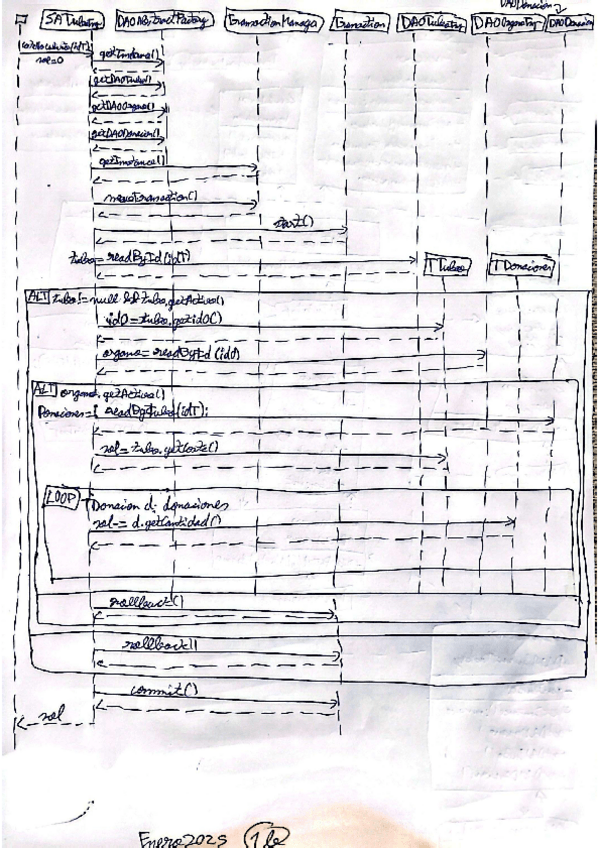 DAODonacion
SATuboImp DAOAbstractFactory TransactionManager Transaction DAOTuboImp DAOOrganoImp DAODonacion
sol=0
getInstance()
getDAOTubo()
getDAOOrgano()
getDAODonacion()
getInstance()
newTransaction()
start()
tubo=readById(idT)
TTubo TDonacion
ALT tubo!=null && tubo.getActivo()
idO=tubo.getidO()
organo=readById(idO)
ALT organo.getActivo()
Donaciones= readByTubo(idT);
sol=tubo.getCoste()
LOOP TDonacion d: donaciones
sol-= d.getCantidad()
rollback()
rollback()
commit()
sol
Enero2025 1b